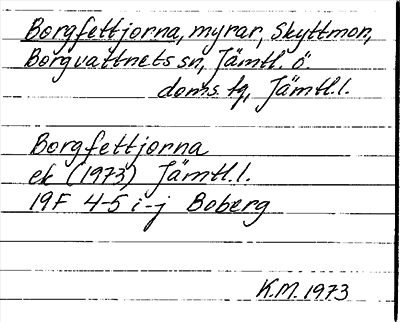 Borgfettjorna, myrar, Skyttmon,
Borgvattnets sn, Jämtl. ö.
doms. tg, Jämtl.l.
Borgfettjorna
ek (1973) Jämtl.l.
19F 4-5 i-j Boberg
K.M. 1973